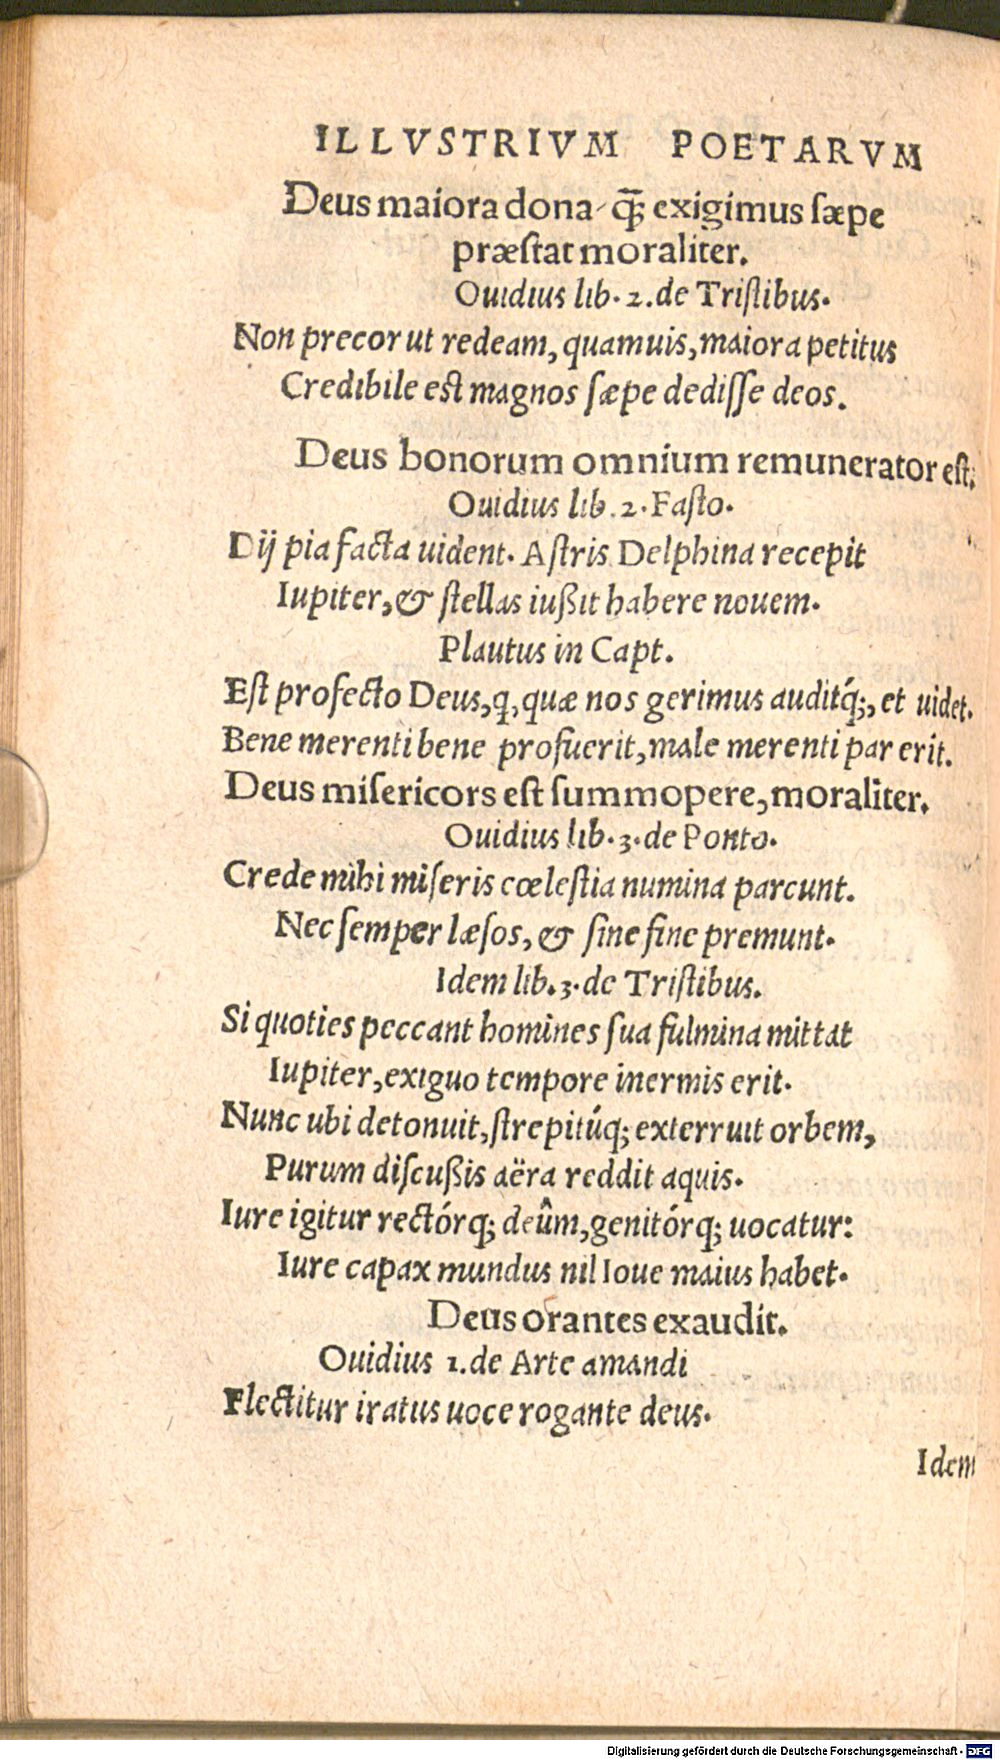 ILLVSTRIVM POETARVM
Deus maiora dona q̃; exigimus sæpe
præſtat moraliter.
Ouidius lib. 2. de Triſtibus.
Non precor ut redeam, quamuis, maiora petitus
Credibile eſt magnos ſæpe dediſſe deos.
Deus bonorum omnium remunerator eſt.
Ouidius lib. 2. Faſto.
Dij pia facta uident. Aſtris Delphina recepit
Iupiter, & ſtellas iußit habere nouem.
Plautus in Capt.
Eſt profecto Deus, q, quæ nos gerimus auditq́;, et uidet.
Bene merenti bene profuerit, male merenti par erit.
Deus miſericors eſt ſummopere, moraliter.
Ouidius lib. 3. de Ponto.
Crede mihi miſeris cœleſtia numina parcunt.
Nec ſemper læſos, & ſine fine premunt.
Idem lib. 3. de Triſtibus.
Si quoties peccant homines ſua fulmina mittat
Iupiter, exiguo tempore inermis erit.
Nunc ubi detonuit, ſtrepitúq; exterruit orbem,
Purum diſcußis aëra reddit aquis.
Iure igitur rectórq; deûm, genitórq; uocatur:
Iure capax mundus nil Ioue maius habet.
Deus orantes exaudit.
Ouidius 1. de Arte amandi
Flectitur iratus uoce rogante deus.
Idem
Digitalisierung gefördert durch die Deutsche Forschungsgemeinschaft - DFG